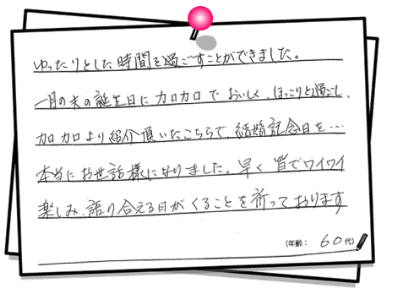 ゆったりとした時間を過ごすことができました。
一月の夫の誕生日にカロカロで おいしく、ほっこりと過ごし、
カロカロより紹介頂いたこちらで、結婚記念日を…
本当にお世話様になりました。早く皆でワイワイ
楽しみ、語り合える日がくることを祈っております
(年齢: 60代)